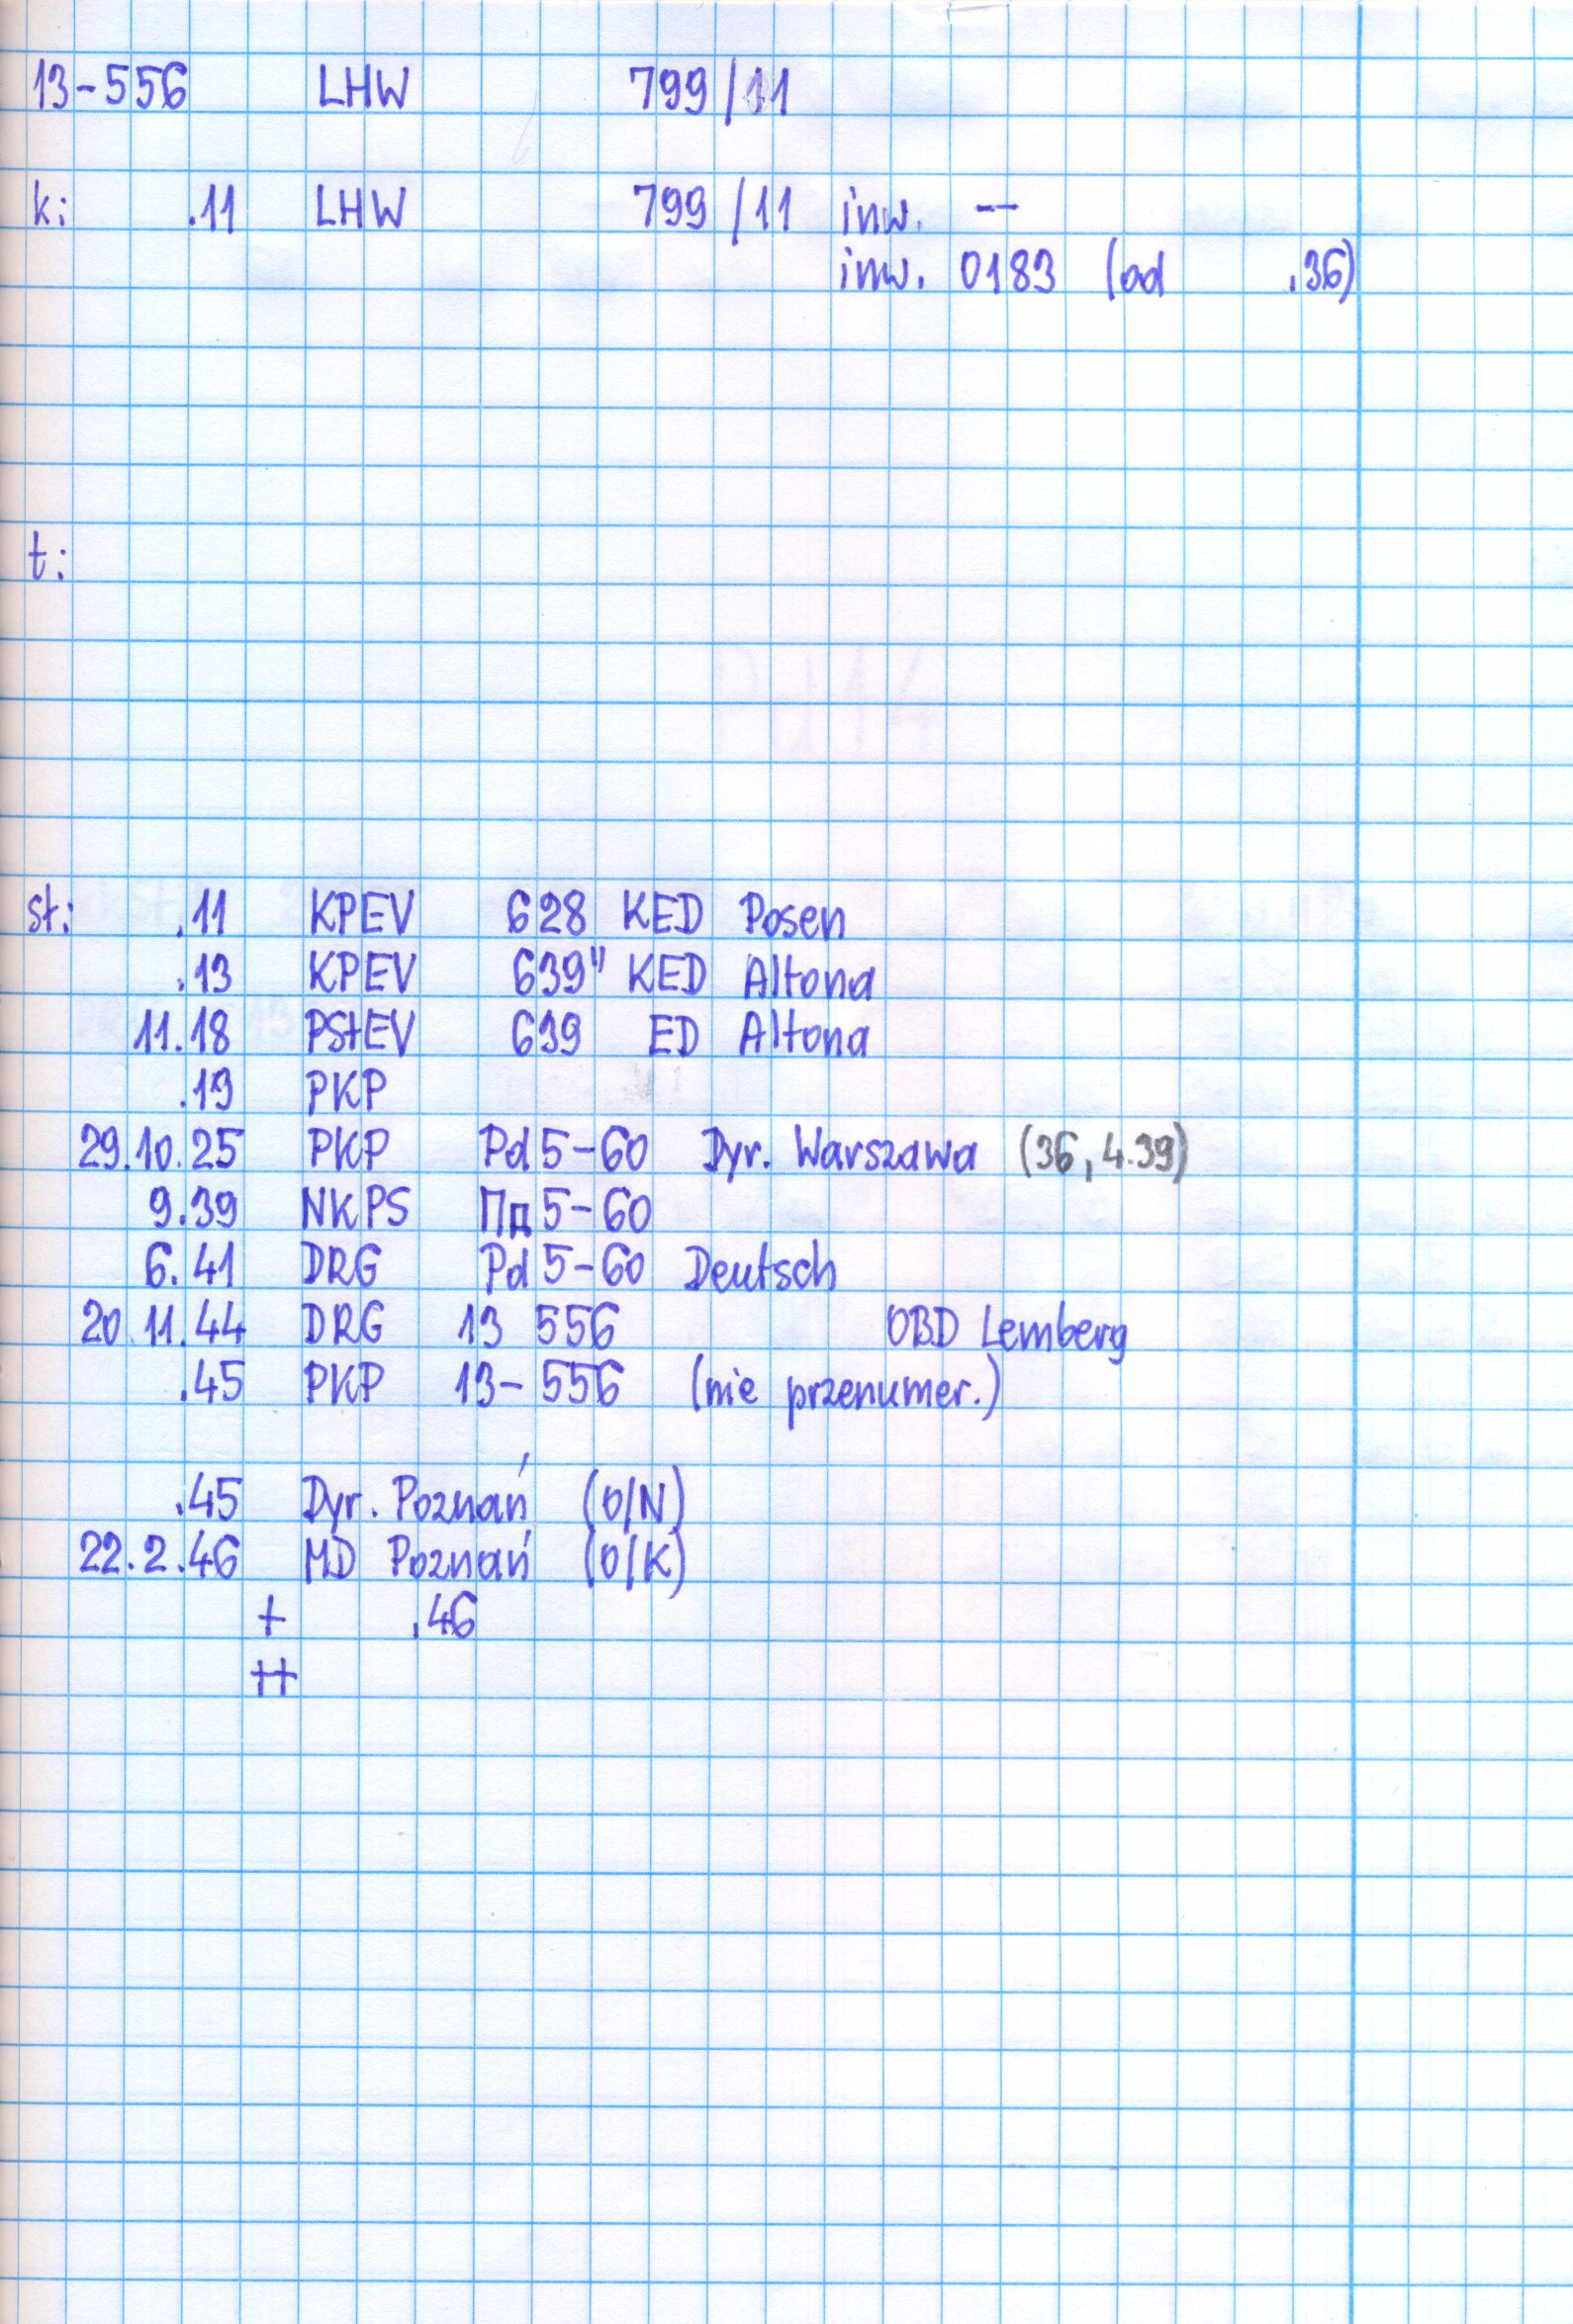 13-556 LHW 799/11
k: .11 LHW 799/11 inw. —
inw. 0183 (od .36)
t:
st: .11 KPEV 628 KED Posen
.13 KPEV 639" KED Altona
11.18 PStEV 639 ED Altona
.19 PKP
29.10.25 PKP Pd5-60 Dyr. Warszawa (36, 4.39)
9.39 NKPS Пд5-60
6.41 DRG Pd5-60 Deutsch
20.11.44 DRG 13 556 OBD Lemberg
.45 PKP 13-556 (nie przenumer.)
.45 Dyr. Poznań (0/N)
22.2.46 MD Poznań (0/K)
+ .46
++